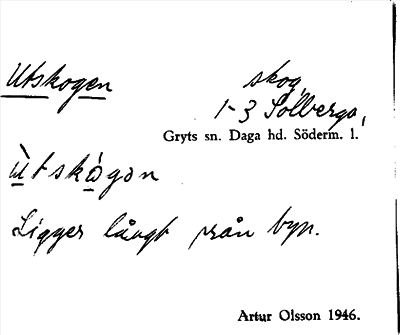 Utskogen skog
1-3 Solberga,
Gryts sn. Daga hd. Söderm. l.
ùtskå̀gən
Ligger långt från byn.
Artur Olsson 1946.